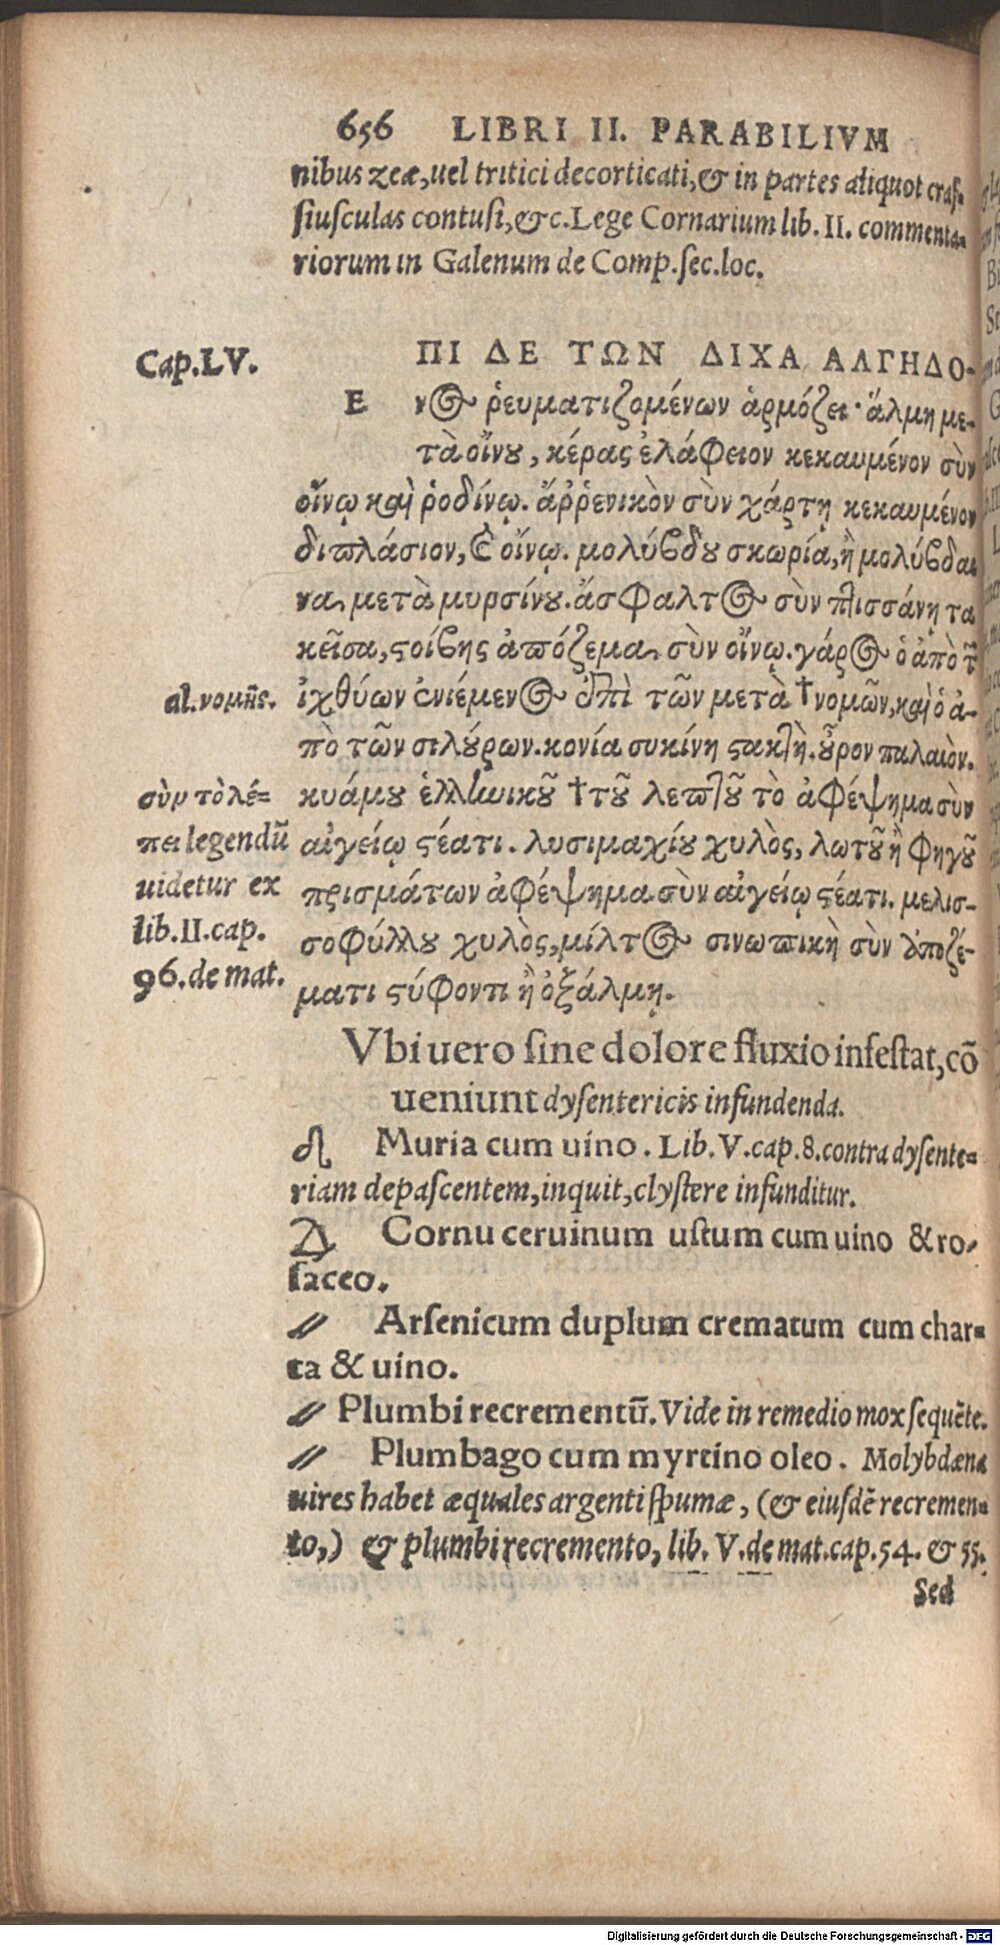 656 LIBRI II. PARABILIVM
nibus zeæ, uel tritici decorticati, & in partes aliquot craſ-
ſiuſculas contuſi, &c. Lege Cornarium lib. II. commenta-
riorum in Galenum de Comp. ſec. loc.
Cap. LV.
ΠΙ ΔΕ ΤΩΝ ΔΙΧΑ ΑΛΓΗΔΟ-
Ε νος ῥευματιζομένων ἁρμόζει· ἅλμη με-
τὰ οἴνου, κέρας ἐλάφειον κεκαυμένον σὺν
οἴνῳ καὶ ῥοδίνῳ. ἄῤῥενικὸν σὺν χάρτῃ κεκαυμένον
διπλάσιον, & οἴνῳ. μολύβδου σκωρία, ἢ μολύβδαι
να, μετὰ μυρσίνου. ἄσφαλτος σὺν πτισσάνῃ τα
κεῖσα, στοίβης ἀπόζεμα, σὺν οἴνῳ. γάρος ὁ ἀπὸ τῶ̃
al. νομῆς.
ἰχθύων ἐνιέμενος ἐπὶ τῶν μετὰ †νομῶν, καὶ ὁ ἀ-
πὸ τῶν σιλούρων. κονία συκίνη στακτὴ. οὖρον παλαιὸν.
σὺν τὸ λέ=
πει legendũ
uidetur ex
lib. II. cap.
96. de mat.
κυάμου ἑλληνικοῦ †τοῦ λεπτοῦ τὸ ἀφέψημα σὺν
αἰγείῳ στέατι. λυσιμαχίου χυλὸς, λωτοῦ ἢ φηγοῦ
πρισμάτων ἀφέψημα σὺν αἰγείῳ στέατι. μελισ-
σοφύλλου χυλὸς, μίλτος σινωπικὴ σὺν ἀποζέ-
ματι στύφοντι ἢ ὀξάλμῃ.
Vbi uero ſine dolore fluxio infeſtat, cõ
ueniunt dyſentericis infundenda.
♌ Muria cum uino. Lib. V. cap. 8. contra dyſente=
riam depaſcentem, inquit, clyſtere infunditur.
Cornu ceruinum uſtum cum uino & ro-
ſaceo.
// Arſenicum duplum crematum cum char=
ta & uino.
// Plumbi recrementũ. Vide in remedio mox ſequẽte.
// Plumbago cum myrtino oleo. Molybdæna
uires habet æquales argenti ſpumæ, (& eiuſdẽ recremen=
to,) & plumbi recremento, lib. V. de mat. cap. 54. & 55.
Sed
Digitalisierung gefördert durch die Deutsche Forschungsgemeinschaft - DFG